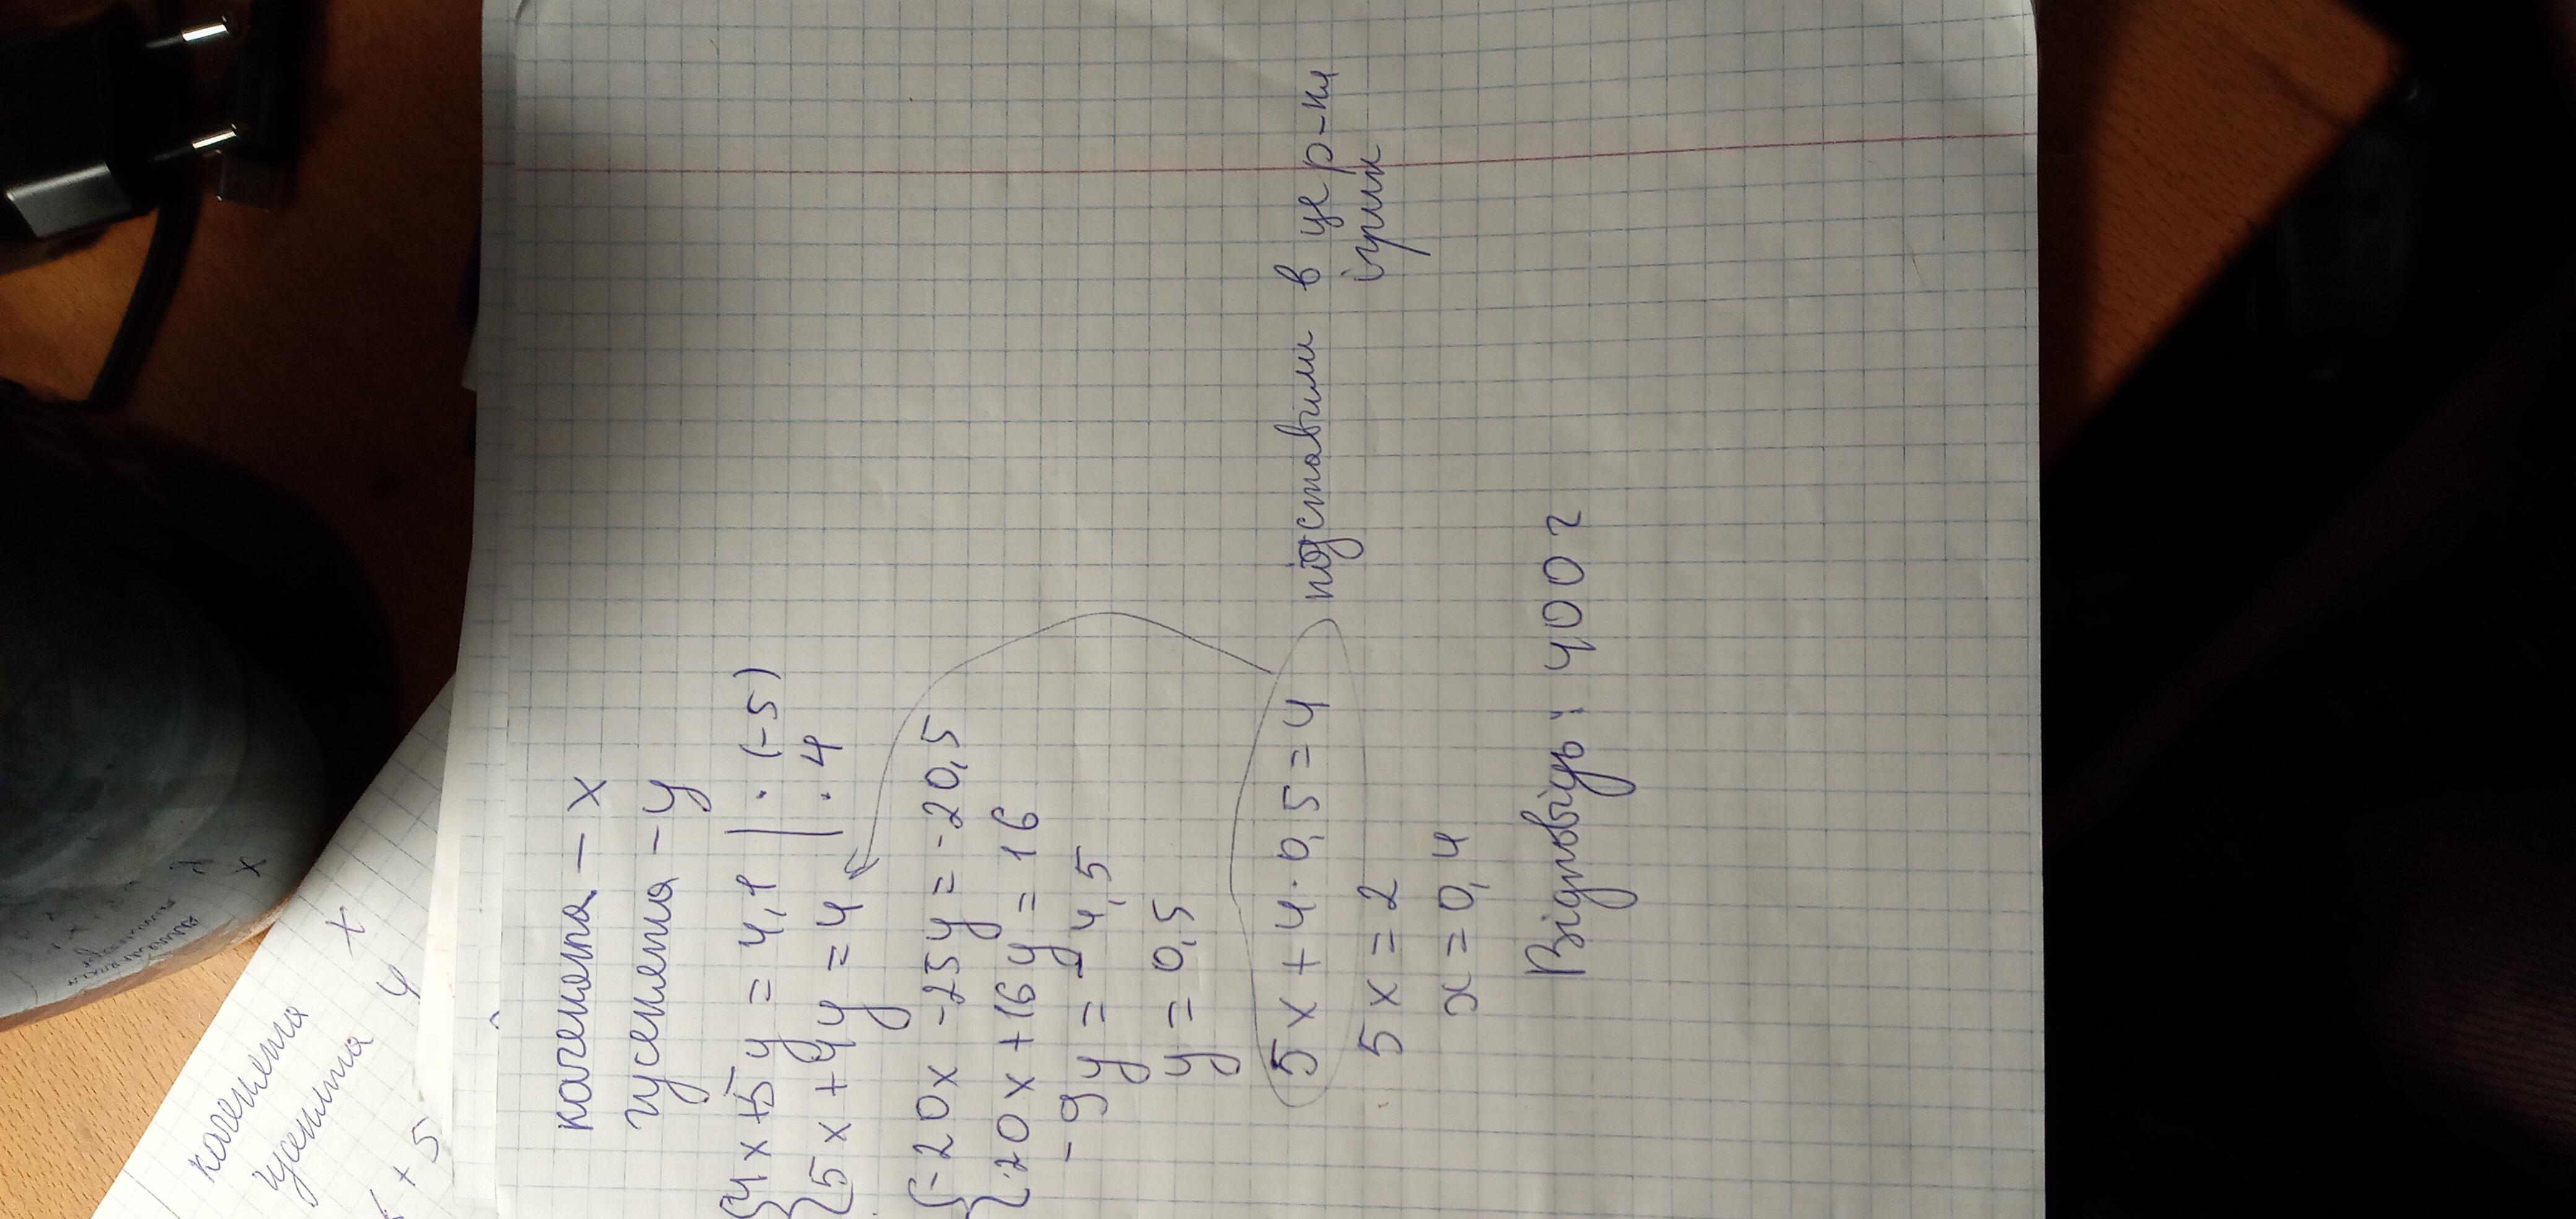 каченята – x
гусенята – y
{4x+5y = 4,1 | · (-5)
{5x+4y = 4 | · 4
{-20x -25y = -20,5
{20x+16y = 16
-9y = -4,5
y = 0,5
5x+4·0,5=4 підставили в це р-ня
ігрик
5x=2
x=0,4
Відповідь: 400 г
каченята x
гусенята y
+5